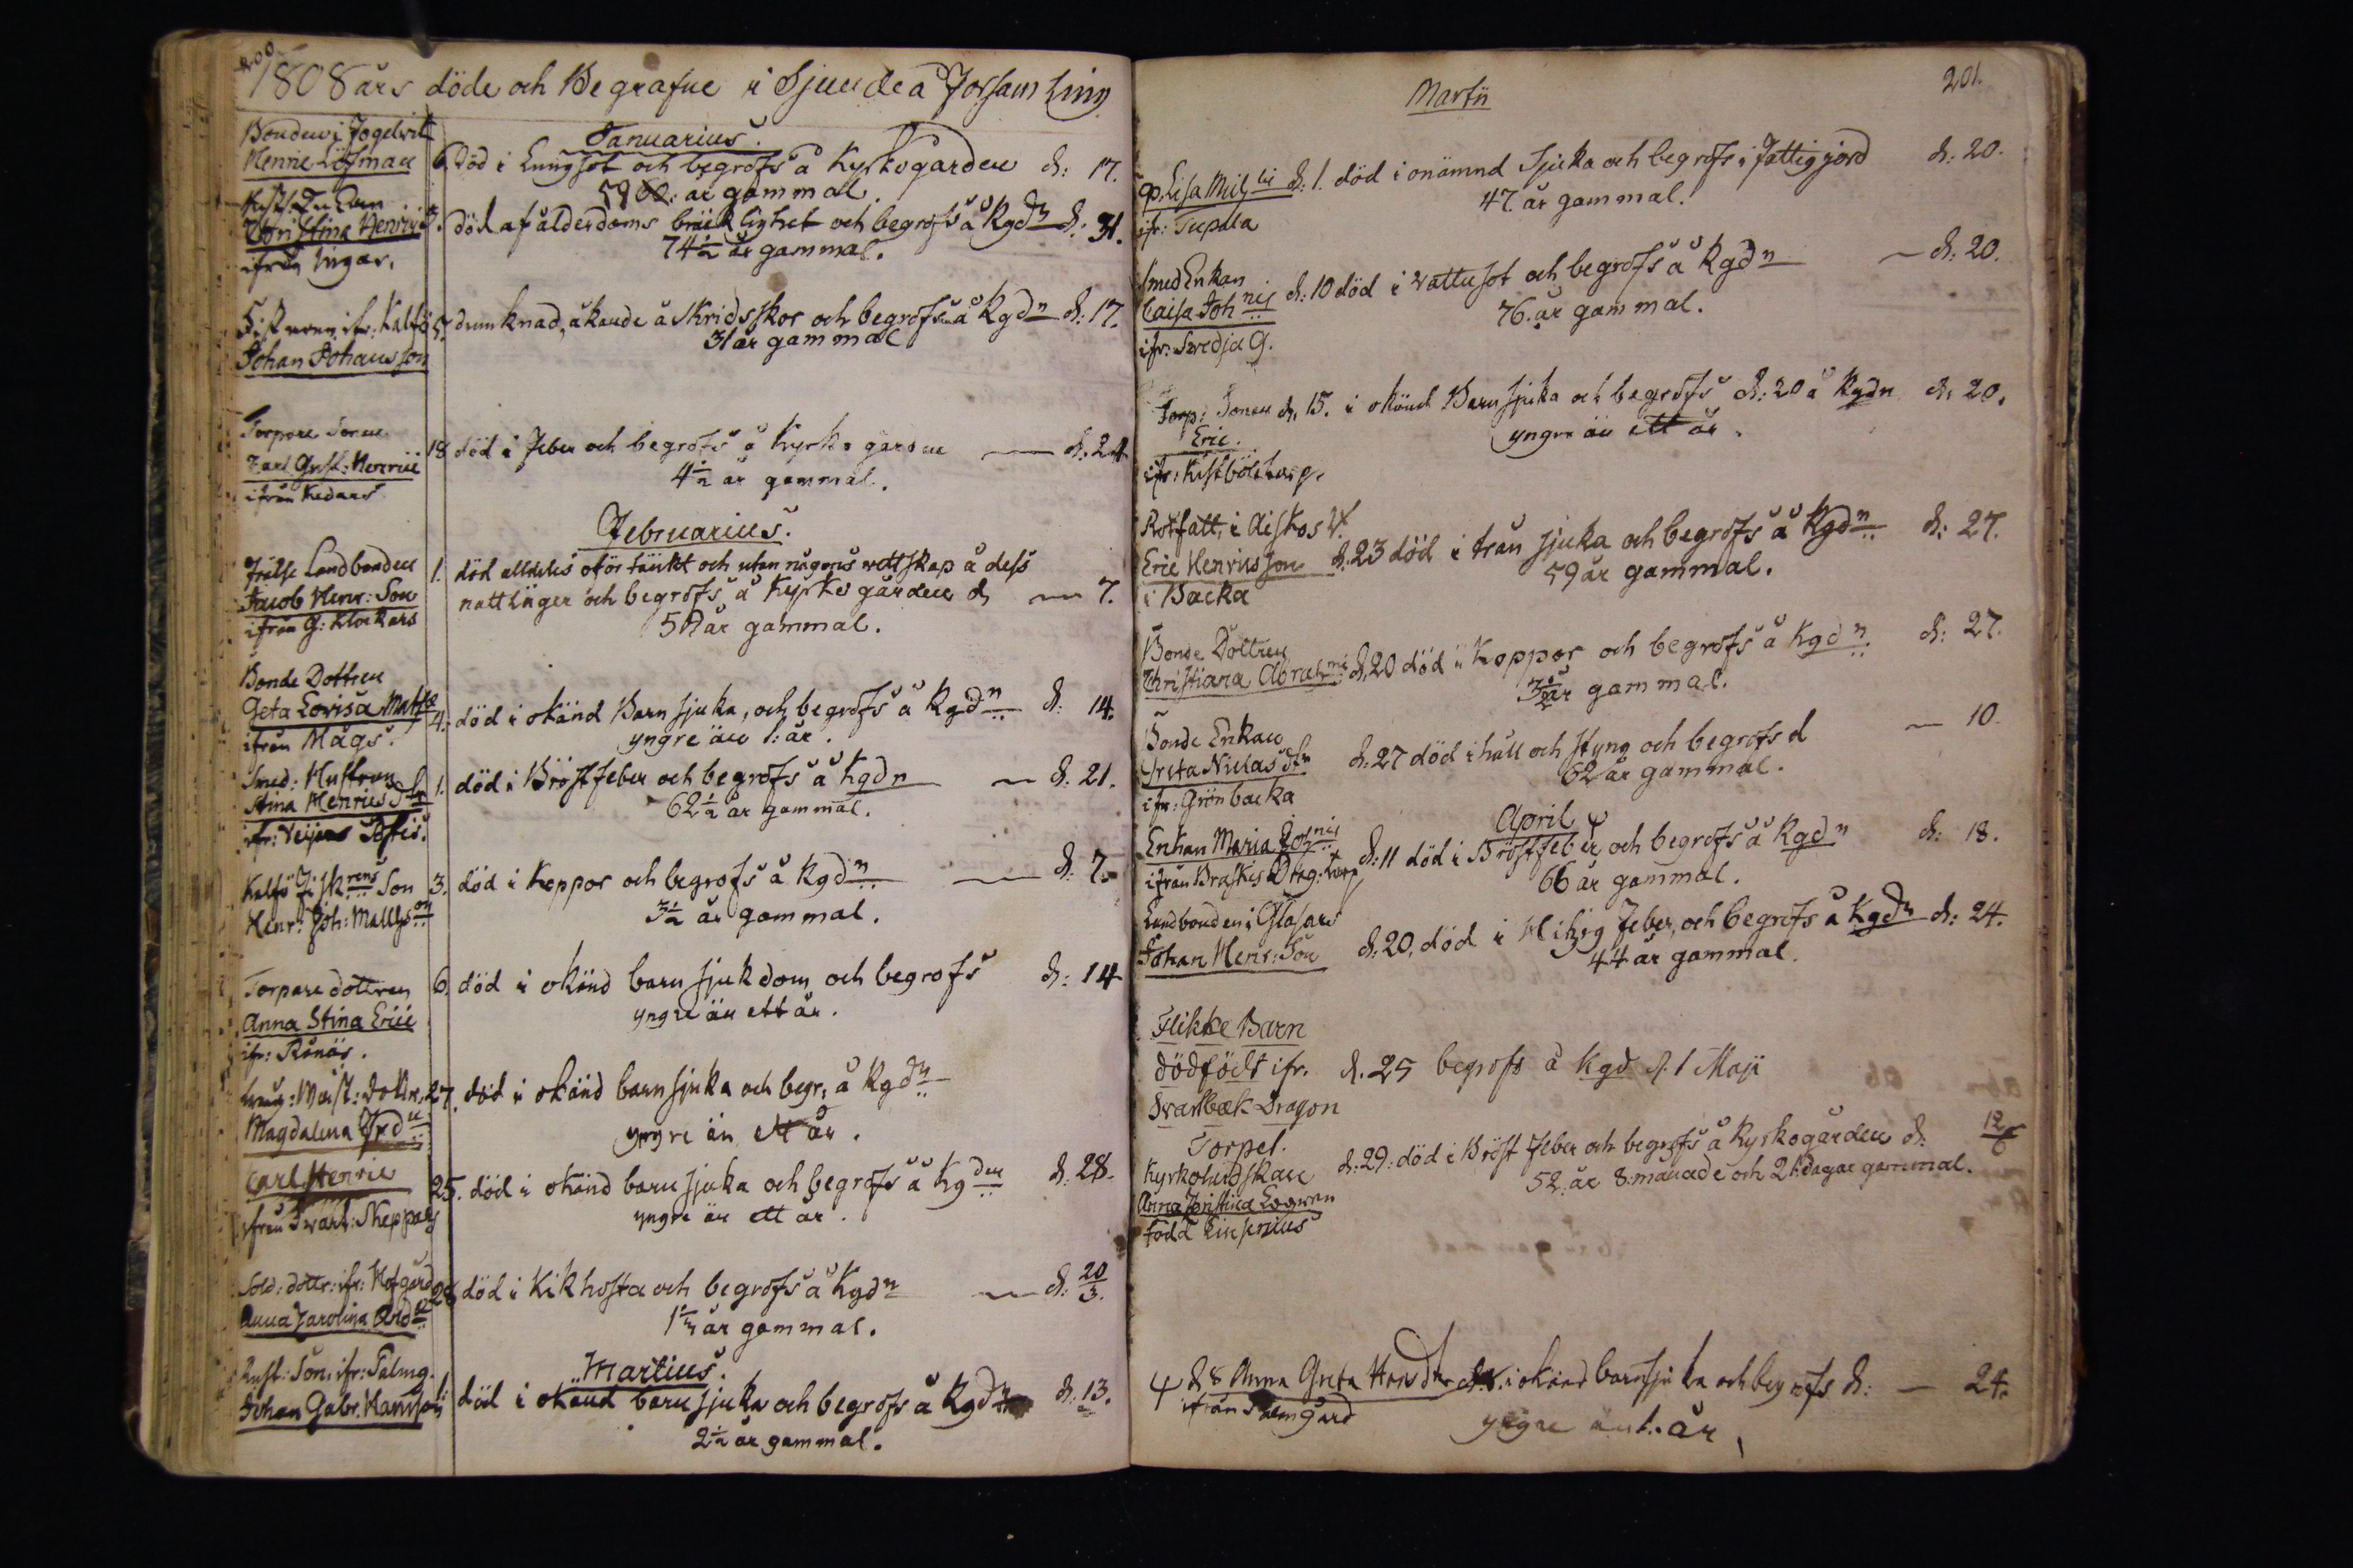 200
1808 års döde och Begrafne i Sjundeå Församling
Januarius.
Bonden i Fogelvik
Henric Löfman 6. död i Lungsot och begrofs å Kyrkogården d: 17.
59 år gammal
Christina Henrici död af ålderdoms bräcklighet och begrofs å Kgdn d: 31.
ifrån Ingas. 74½ år gammal.
Fiskaren ifr: Kalfö 5. drunknad, åkande å skridskor och begrofs å Kgdn d: 17.
Johan Johansson 31 år gammal
Torpare Sonen
Carl Gust: Henrici 18 död i Feber och begrofs å Kyrkogården d. 24
ifrån Kedars 4½ år gammal.
Februarius.
Frälse Landbonden 1. död alldeles oförtänkt och utan någons vettskap å dess
Jacob Henr: Son nattläger och begrofs å Kyrkogården d, 7.
ifrån G: Klockars år gammal.
Bonde Dottren
Greta Lovisa 4. död i okänd Barnsjuka, och begrofs å Kgdn d: 14.
ifrån Mågs. yngre än 1: år.
Smed: Hustrun
Stina Henrics Dr 1. död i Bröstfeber och begrofs å Kgdn d: 21.
62½ år gammal.
Kalfö Fiskrens Son 3. död i Koppor och begrofs å Kgdn d: 7.
Henr: Joh: Mattsson 3½ år gammal.
Torpare dottren 6. död i okänd barnsjukdom och begrofs d: 14
Anna Stina Erici yngre än ett år.
ifr: Rånäs.
27. död i okänd barnsjuka och begr: å Kgdn
Magdalena yngre än ett år.
Carl Henric 25. död i okänd barnsjuka och begrofs å Kgden d: 28.
ifrån Svart: yngre än ett år.
Sold: dottr: ifr: Hofgård 28 död i Kikhosta och begrofs å Kgdn d: 20/3.
Anna Carolina 1½ år gammal.
Martius.
Son: ifr: Palmg.
Johan Gabr. Hansson 1 död i okänd barnsjuka och begrofs å Kgdn d: 13.
2½ år gammal.
Martii 201.
Lisa d: 1. död i onämnd sjuka och begrofs i fattigjord d: 20.
ifr: 47 år gammal.
Smed Enkan
Caisa Johnis d: 10 död i vattusot och begrofs å Kgdn d: 20.
ifr: Svedja G. 76. år gammal.
Torp: Sonen d. 15. i okänd Barnsjuka och begrofs d: 20 å Kgdn d. 20.
Eric. yngre än ett år.
Rotfatt. i
Eric Henricsson d. 23 död i trånsjuka och begrofs å Kgdn d: 27.
i Backa 59 år gammal.
Bonde Dottren
Christiana d. 20 död i Koppor och begrofs å Kgdn d: 27.
år gammal.
Bonde Enkan
Greta Niclas Dr d: 27 död i håll och styng och begrofs d 10.
ifr: Grönbacka 62 år gammal.
April Ψ
Enkan Maria d: 11 död i Bröstfeber och begrofs å Kgdn d: 18.
ifrån Braskis 66 år gammal.
Landbonden i Glasars
Johan Henr: Son d: 20. död i Hitzig Feber, och begrofs å Kgdn d: 24.
44 år gammal.
Flikke Barn
dödfödt ifr. d. 25 begrofs å Kgd d. 1 Maji
Svartbäk Dragon
Torpet.
d: 29: död i Bröst Feber och begrofs å Kyrkogården d:
Anna 52 år 8: månade och 21 dagar gammal.
född
Ψ d 8 Anna Greta i okänd barnsjuka och begrofs d: 24.
ifrån yngre än 1. år